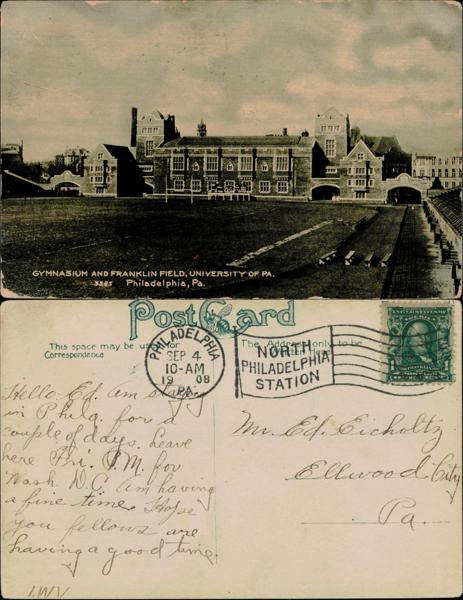 GYMNASIUM AND FRANKLIN FIELD, UNIVERSITY OF PA.
3385 Philadelphia, Pa.
Post Card
This space may be used for
Correspondence
The Address only to be
PHILADELPHIA
SEP 4
10-AM
1908
PA.
NORTH
PHILADELPHIA
STATION
Hello Ed. Am
in Phila. for a
couple of days. Leave
here Fri. P.M. for
Wash. D.C. Am having
a fine time. Hope
you fellows are
having a good time.
Mr. Ed. Eicholtz
Ellwood City
Pa.